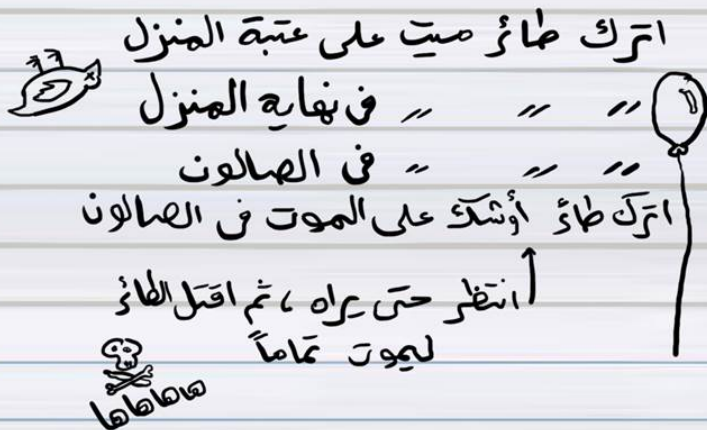 اترك طائر ميت على عتبة المنزل
〃 〃 〃 في نهاية المنزل
〃 〃 〃 في الصالون
اترك طائر أوشك على الموت في الصالون
انتظر حتى يراه، ثم اقتل الطائر
ليموت تماماً
هاهاهاها